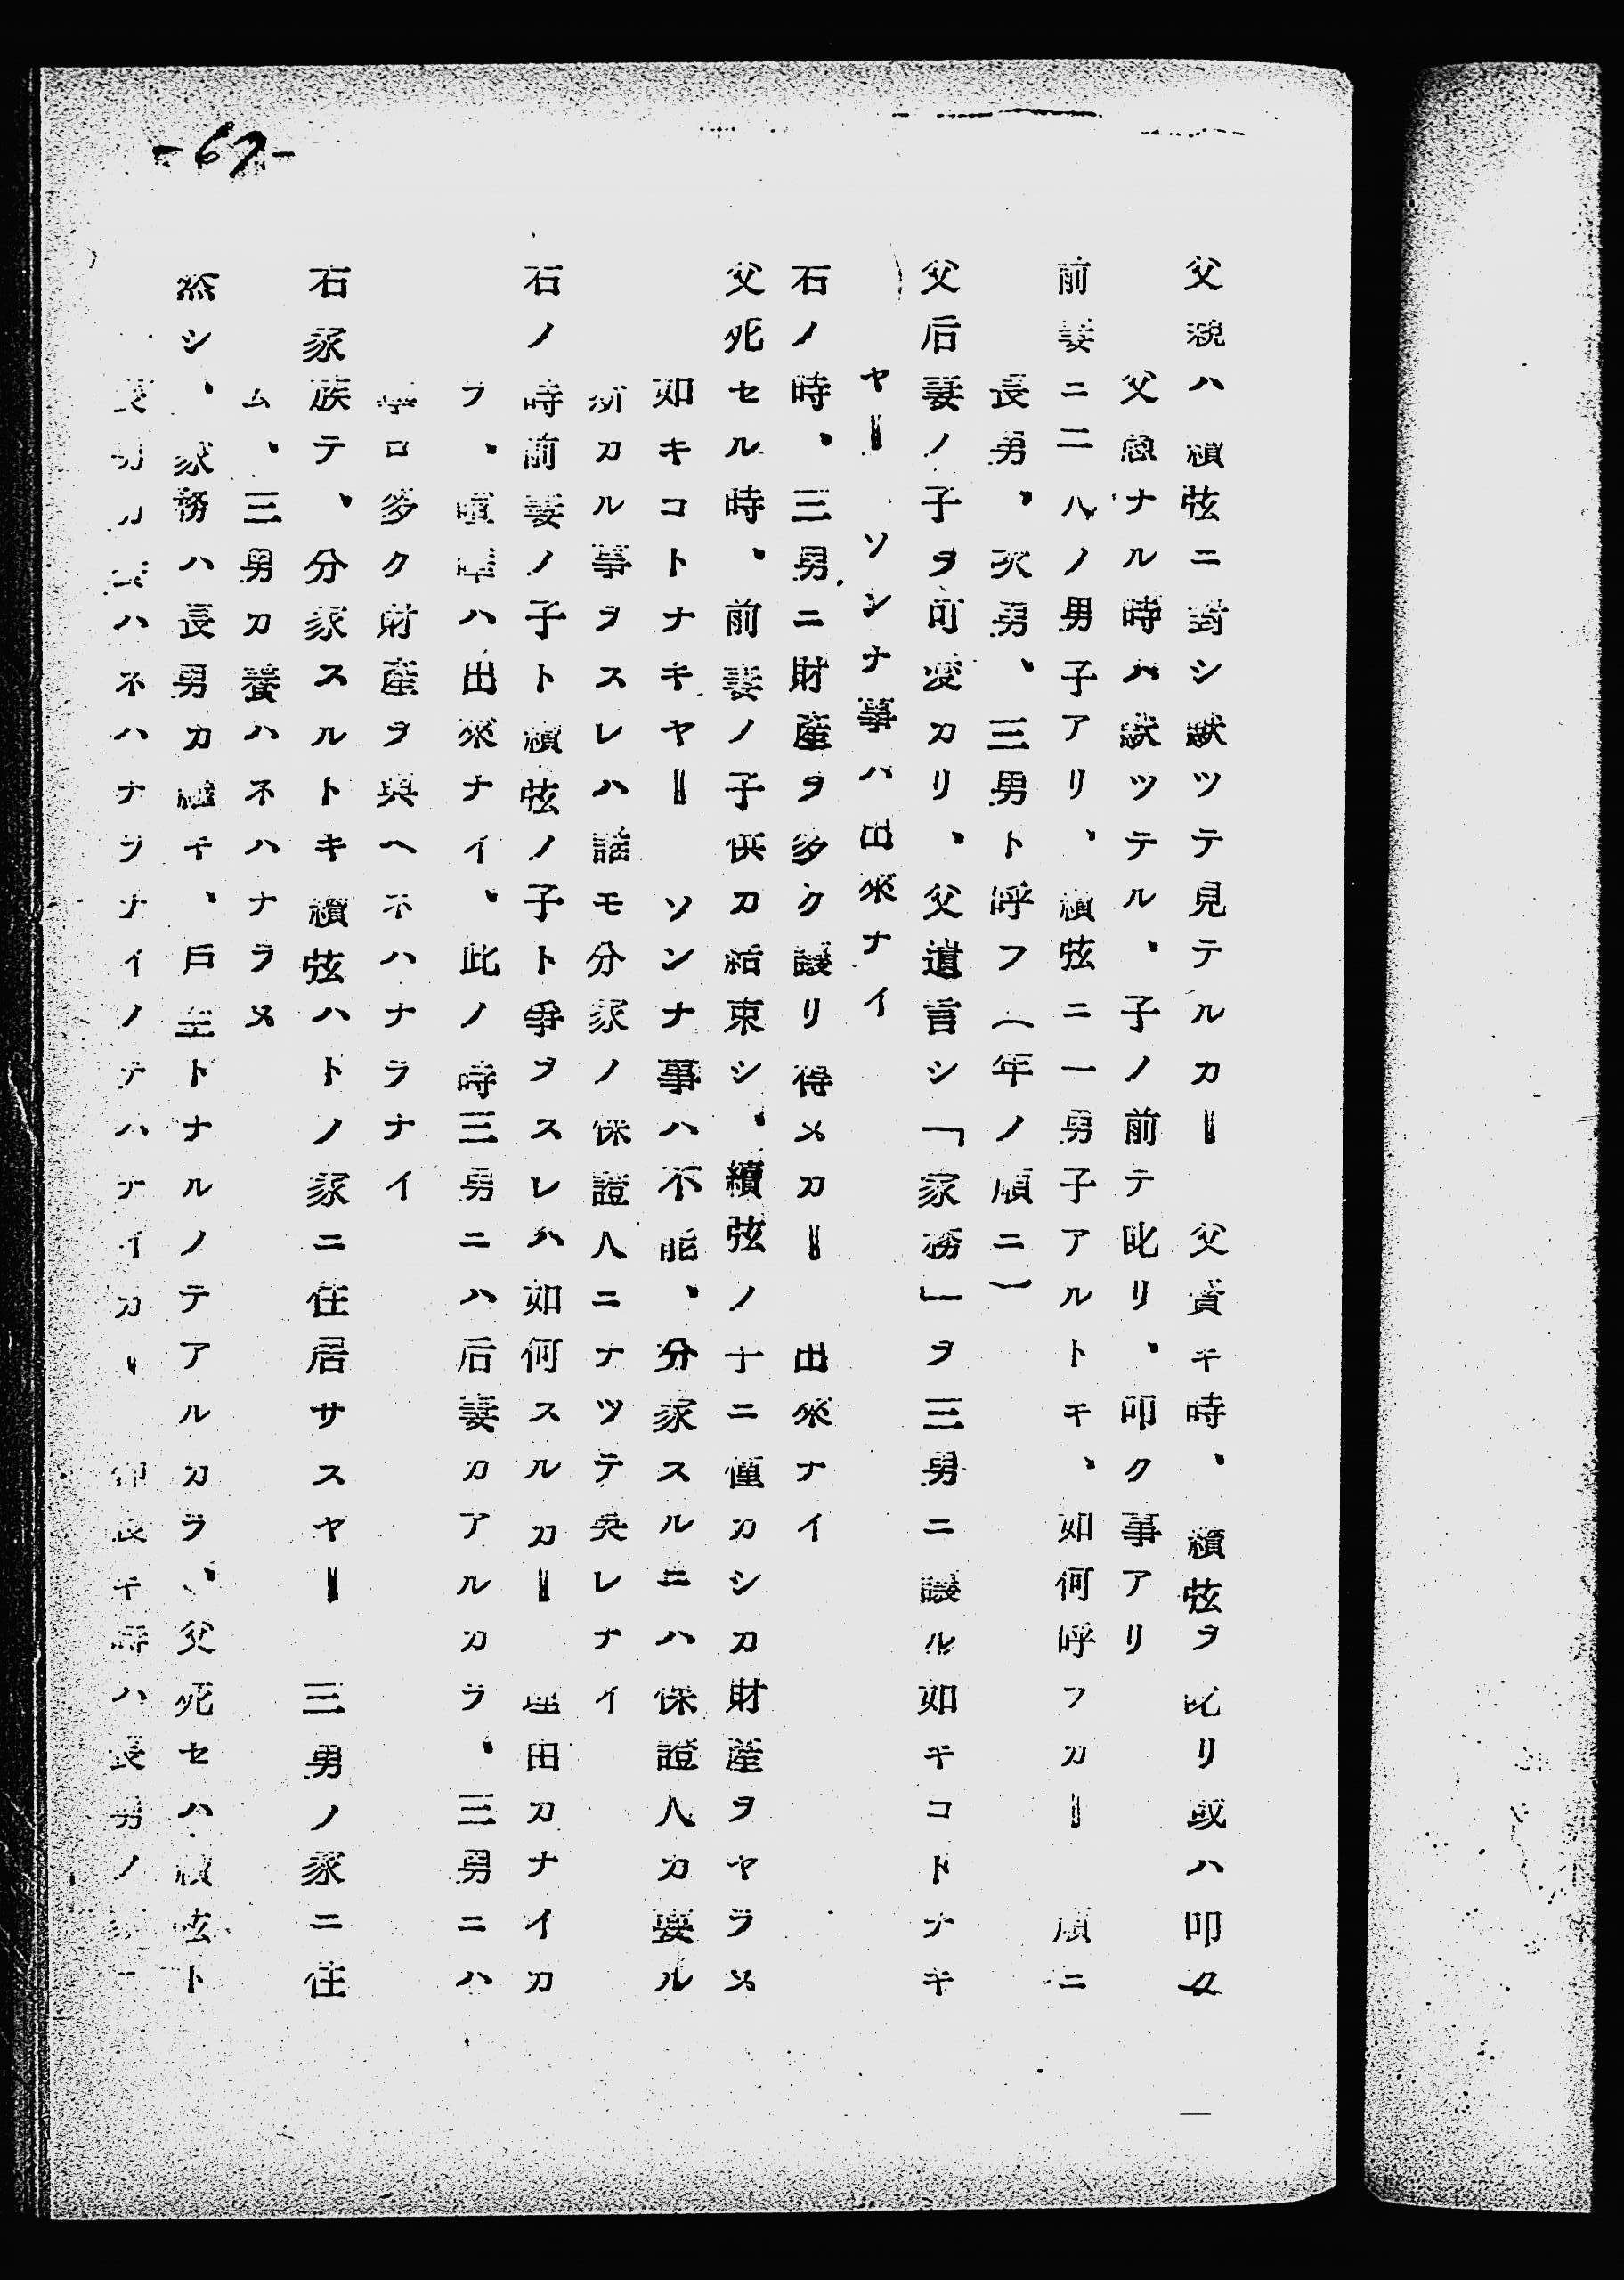 -67-
父親ハ續弦ニ對シ默ツテ見テルカー‖ 父貴キ時、續弦ヲ叱リ或ハ叩ク
父愚ナル時ハ默ツテル、子ノ前テ叱リ、叩ク事アリ
前妻ニ二人ノ男子アリ、續弦ニ一男子アルトキ、如何呼フカー‖ 順ニ
長男、次男、三男ト呼フ（年ノ順ニ）
父后妻ノ子ヲ可愛カリ、父遺言シ「家務」ヲ三男ニ讓ル如キコトナキ
ヤー‖ ソンナ事ハ出來ナイ
右ノ時、三男ニ財產ヲ多ク讓リ得ヌカー‖ 出來ナイ
父死セル時、前妻ノ子供カ結束シ、續弦ノ子ニ僅カシカ財產ヲヤラヌ
如キコトナキヤー‖ ソンナ事ハ不能、分家スルニハ保證人カ要ル
斯カル事ヲスレハ誰モ分家ノ保證人ニナツテ吳レナイ
右ノ時前妻ノ子ト續弦ノ子ト爭ヲスレハ如何スルカー‖ 理由カナイカ
ラ、喧嘩ハ出來ナイ、此ノ時三男ニハ后妻カアルカラ、三男ニハ
寧ロ多ク財產ヲ與ヘネハナラナイ
右家族テ、分家スルトキ續弦ハトノ家ニ住居サスヤー‖ 三男ノ家ニ住
ム、三男カ養ハネハナラヌ
然シ、家務ハ長男カ繼キ、戶主トナルノテアルカラ、父死セハ續弦ト
長男カ養ハネハナラナイノテハナイカ‖ 仲良キ時ハ長男ノ家ニ